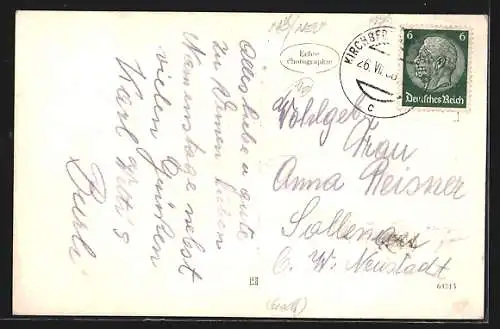 Alles liebe u gute
zu Ihrem lieben
Namenstage nebst
vielen Grüßen
Karl
Burli
Echte
Photographie
KIRCHBERG
26. VII.
c
6 6
Deutsches Reich
Wohlgeb.
Frau
Anna Reisner
Sollenau
b. W. Neustadt